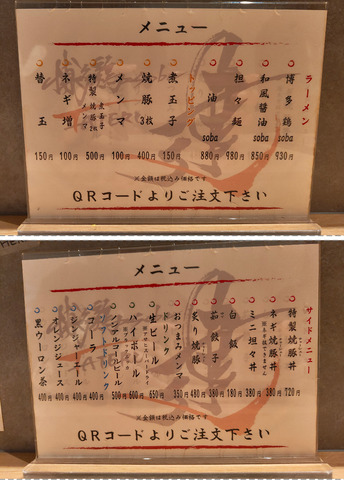 メニュー
ラーメン
博多鶏soba 930円
和風醤油soba 850円
担々麺 980円
油soba 880円
トッピング
煮玉子 150円
焼豚3枚 400円
メンマ 100円
特製 焼豚2枚 煮玉子 メンマ 500円
ネギ増 100円
替玉 150円
※金額は税込み価格です
QRコードよりご注文下さい
メニュー
サイドメニュー
特製焼豚丼 720円
ネギ焼豚丼 380円
ミニ担々丼 380円
白飯 180円
茹餃子 380円
炙り焼豚 480円
おつまみメンマ 350円
ドリンク
生ビール 650円
ハイボール 600円
ノンアルコールビール 500円
ソフトドリンク
コーラ 400円
ジンジャーエール 400円
オレンジジュース 400円
黒ウーロン茶 400円
※金額は税込み価格です
QRコードよりご注文下さい